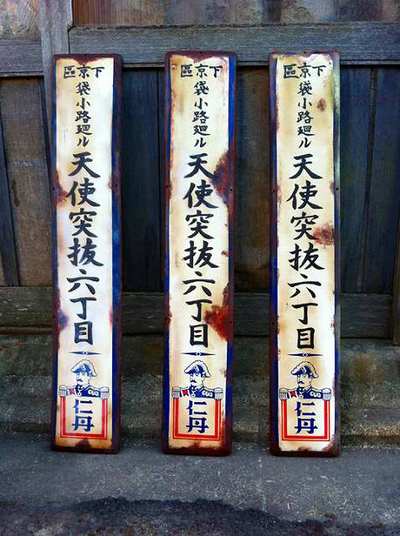 下京區
袋小路廻ル
天使突抜六丁目
仁丹
下京區
袋小路廻ル
天使突抜六丁目
仁丹
下京區
袋小路廻ル
天使突抜六丁目
仁丹